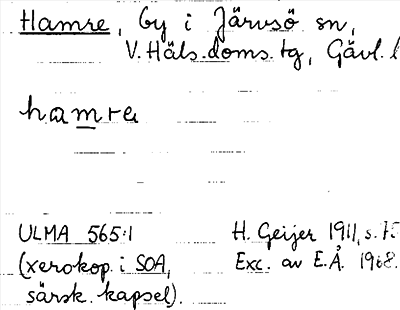 Hamre, by i Järvsö sn,
V. Häls. doms. tg, Gävl. l
hamre
ULMA 565:1
(xerokop. i SOA,
särsk. kapsel).
H. Geijer 1911, s. 75
Exc. av E.Å. 1968.